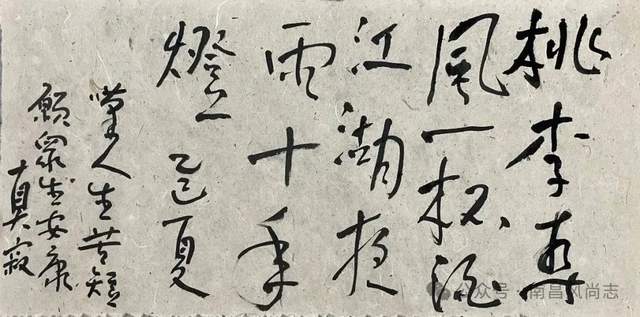 桃李春
風一杯酒
江湖夜
雨十年
燈 乙巳夏
嘆人生苦短
願眾生安康
真寂
公众号 · 南昌风尚志